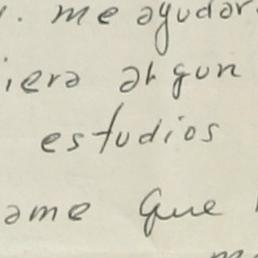 . me ayudar
iera algun
estudios
ame que